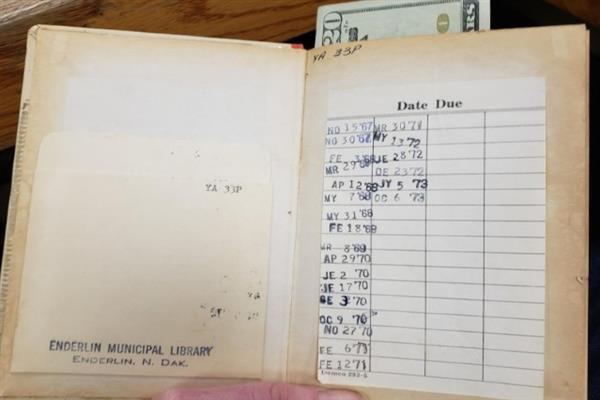 20
ARS
YA 33P
YA 33P
YA
ENDERLIN MUNICIPAL LIBRARY
ENDERLIN, N. DAK.
Date Due
NO 15 '67
NO 30 '67
FE
MR 29 '68
AP 12 '68
MY 7 '68
MY 31 '68
FE 18 '69
MR 8 '69
AP 29 '70
JE 2 '70
JE 17 '70
3 '70
OC 9 '70
NO 27 '70
FE 6 '71
FE 12 '71
MR 30 '71
MY 13 '72
JE 28 '72
DE 23 '72
JY 5 '73
OC 6 '73
Demco 293-5